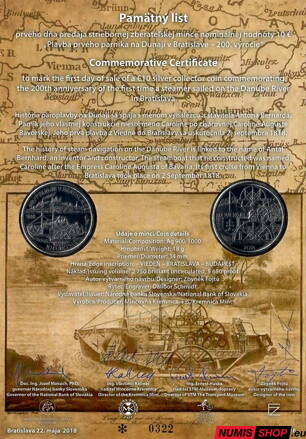 Pamätný list
prvého dňa predaja striebornej zberateľskej mince nominálnej hodnoty 10 €
Plavba prvého parníka na Dunaji v Bratislave - 200. výročie
Commemorative Certificate
to mark the first day of sale of a €10 silver collector coin commemorating
the 200th anniversary of the first time a steamer sailed on the Danube River
in Bratislava
História paroplavby na Dunaji sa spája s menom vynálezcu a staviteľa Antona Bernharda.
Parník jeho vlastnej konštrukcie niesol meno Caroline po cisárovnej Caroline Auguste
Bavorskej. Jeho prvá plavba z Viedne do Bratislavy sa uskutočnila 2. septembra 1818.
The history of steam navigation on the Danube River is linked to the name of Antal
Bernhard, an inventor and constructor. The steam boat that he constructed was named
Caroline after the Empress Caroline Augusta of Bavaria. Its first cruise from Vienna to
Bratislava took place on 2 September 1818.
Údaje o minci/Coin details
Materiál/Composition: Ag 900/1000
Hmotnosť/Weight: 18 g
Priemer/Diameter: 34 mm
Hrana/Edge inscription: VIEDEŇ – BRATISLAVA – BUDAPEŠŤ
Náklad/Issuing volume: 2 750 brilliant uncirculated,
Autor výtvarného návrhu/Designer: Zbyněk Fojtů
Rytec/Engraver: Dalibor Schmidt
Vydavateľ/Issuer: Národná banka Slovenska/National Bank of Slovakia
Výrobca/Producer: Mincovňa Kremnica
Doc. Ing. Jozef Makúch, PhD.
guvernér Národnej banky Slovenska
Governor of the National Bank of Slovakia
Zbyněk Fojtů
autor výtvarného návrhu mince
Designer of the coin
Bratislava 22. mája 2018
№ 0322
NUMIS SHOP